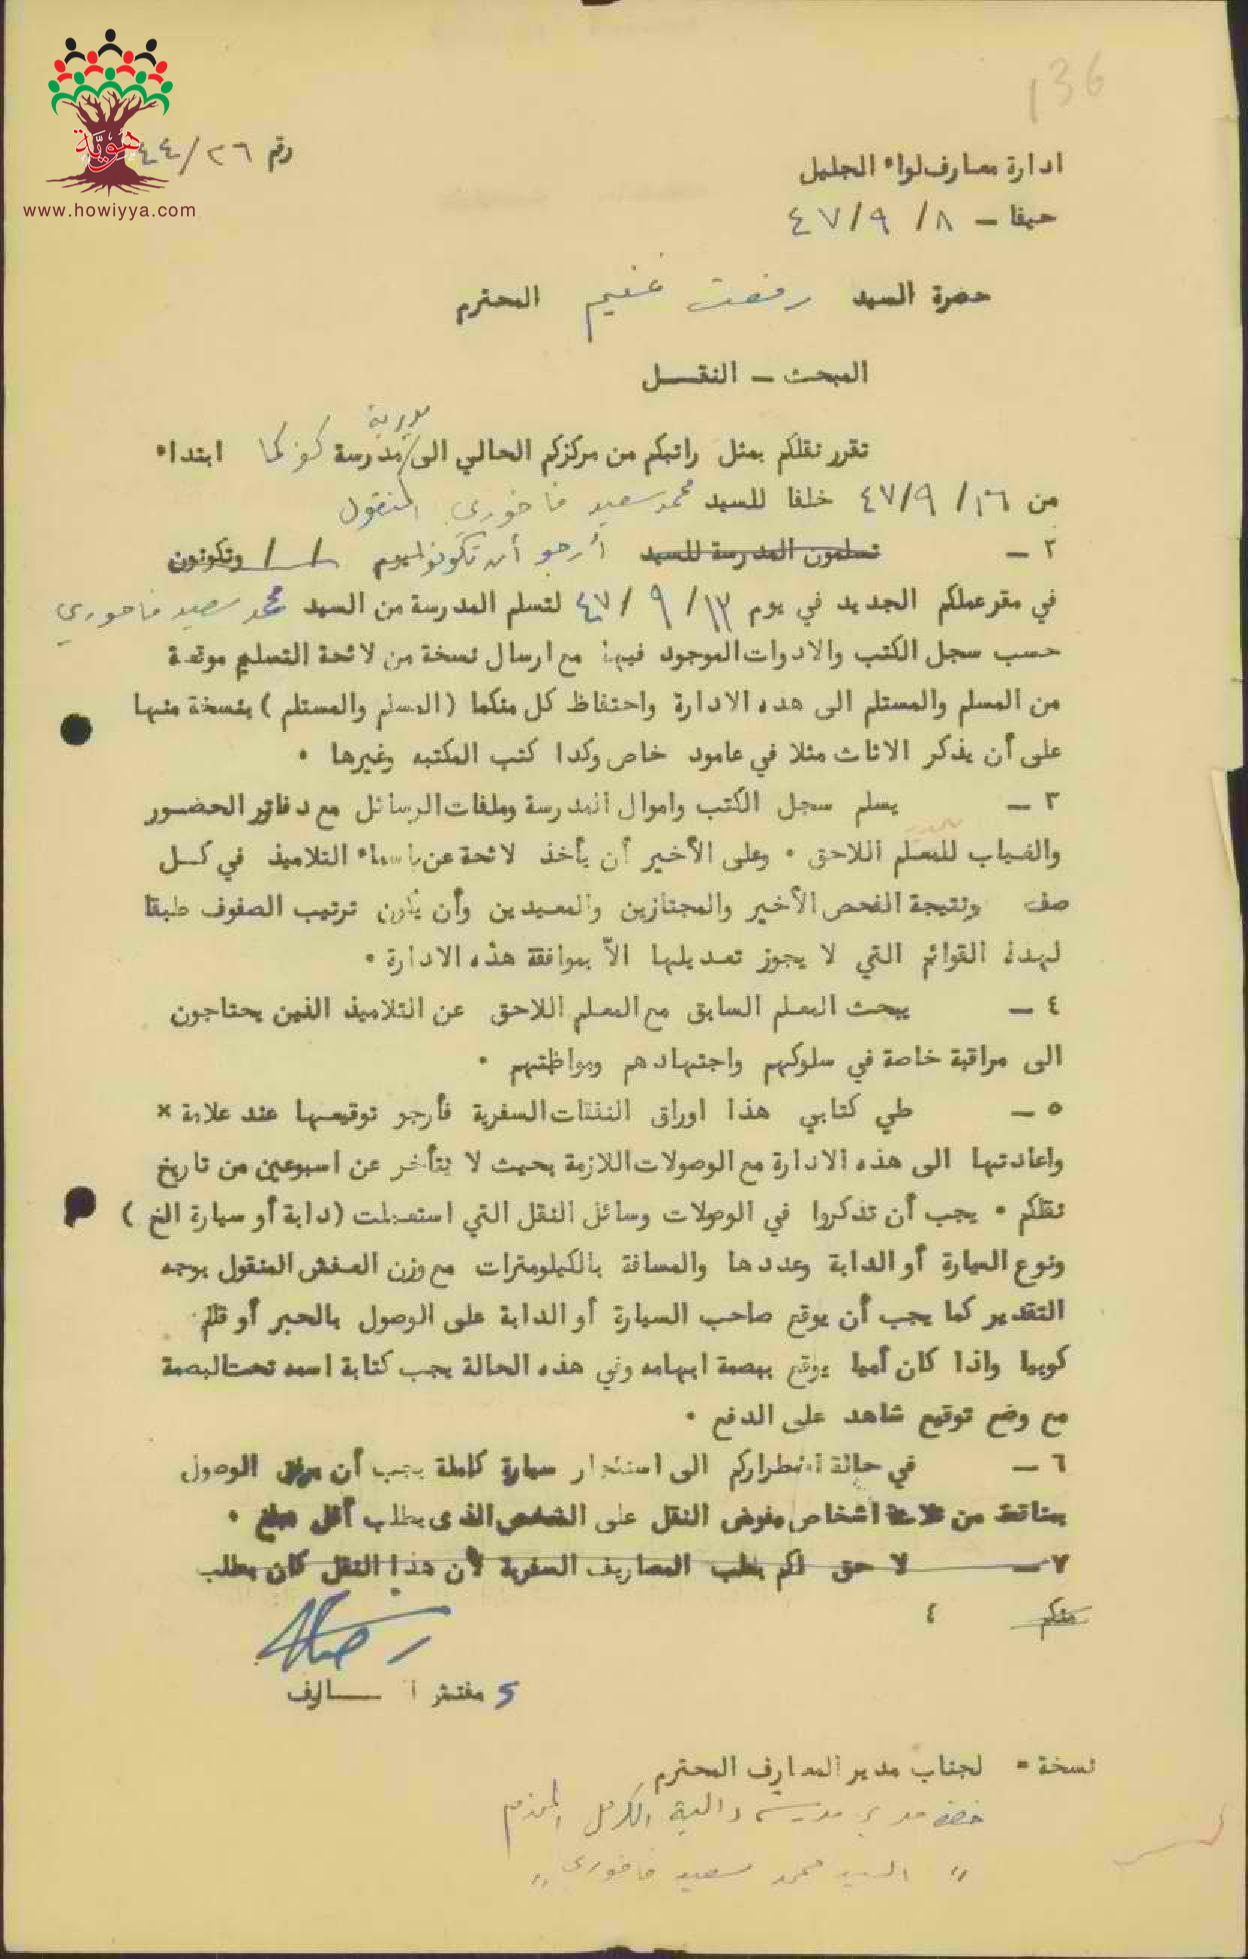 136
هوية
www.howiyya.com
رقم ٤٤/٢٦
ادارة معارف لواء الجليل
حيفا – ٨/ ٩/ ٤٧
حضرة السيد رفعت غنيم المحترم
المبحث – النقــل
مديرية
تقرر نقلكم بمثل راتبكم من مركزكم الحالي الى / مدرسة كفر لما ابتداء
من ١٦/ ٩/ ٤٧ خلفا للسيد محمد سعيد فاخوري المنقول
٢ – تسلمون المدرسة للسيد أرجو أن تكونوا ليوم / / وتكونون
في مقر عملكم الجديد في يوم ١٣/ ٩/ ٤٧ لتسلم المدرسة من السيد محمد سعيد فاخوري
حسب سجل الكتب والادوات الموجود فيها مع ارسال نسخة من لائحة التسليم موقعة
من المسلم والمستلم الى هذه الادارة واحتفاظ كل منكما (المسلم والمستلم) بنسخة منها
على أن يذكر الاثاث مثلا في عامود خاص وكذا كتب المكتبه وغيرها ٠
٣ – يسلم سجل الكتب واموال المدرسة وملفات الرسائل مع دفاتر الحضــور
والغياب للمعلم اللاحق ٠ وعلى الأخير أن يأخذ لائحة عن باسماء التلاميذ في كــل
صف ونتيجة الفحص الأخير والمجتازين والمعيدين وأن يكون ترتيب الصفوف طبقا
لهذه القوائم التي لا يجوز تعديلها الاّ بموافقة هذه الادارة ٠
٤ – يبحث المعلم السابق مع المعلم اللاحق عن التلاميذ الذين يحتاجون
الى مراقبة خاصة في سلوكهم واجتهادهم ومواظبتهم ٠
٥ – طي كتابي هذا اوراق النفقات السفرية فأرجو توقيعها عند علامة ×
واعادتها الى هذه الادارة مع الوصولات اللازمة بحيث لا يتأخر عن اسبوعين من تاريخ
نقلكم ٠ يجب أن تذكروا في الوصولات وسائل النقل التي استعملت (دابة أو سيارة الخ )
ونوع السيارة أو الدابة وعددها والمسافة بالكيلومترات مع وزن العفش المنقول بوجه
التقدير كما يجب أن يوقع صاحب السيارة أو الدابة على الوصول بالحبر أو قلم
كوبيا واذا كان أميا يوقع ببصمة ابهامه وفي هذه الحالة يجب كتابة اسمه تحت البصمة
مع وضع توقيع شاهد على الدفع ٠
٦ – في حالة اضطراركم الى استئجار سيارة كاملة يجب أن يرفق الوصول
بمناقصة من ثلاثة اشخاص مفوض النقل على الشخص الذى يطلب أقل مبلغ ٠
٧ – لا حق لكم بطلب المصاريف السفرية لأن هذا النقل كان بطلب
منكم ٤
مفتش المعـــارف
نسخة ٠ لجناب مدير المعارف المحترم
حضرة مدير مدرسة دالية الكرمل المحترم
" السيد محمد سعيد فاخوري "